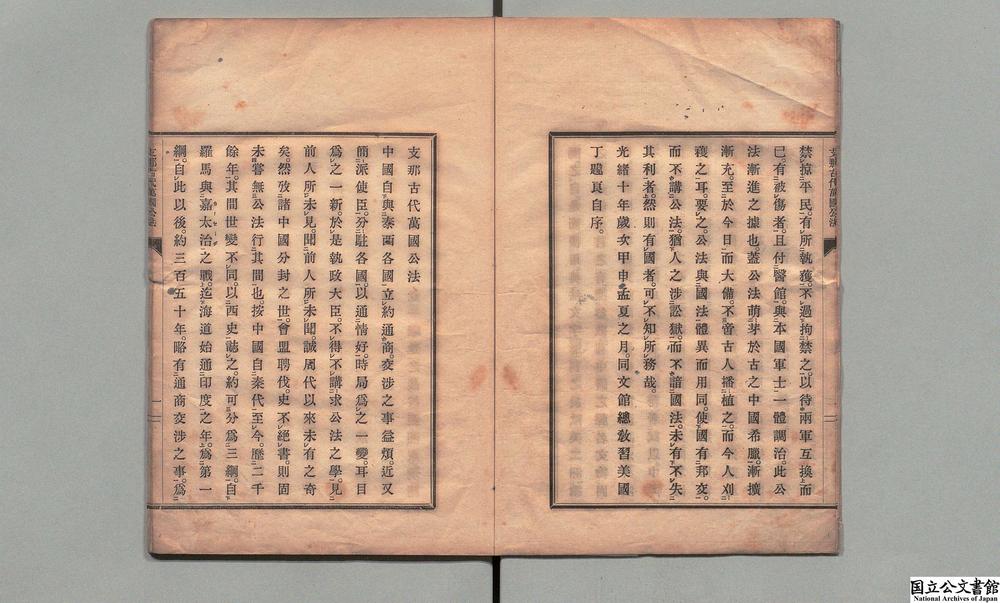 禁掠平民。有所執獲。不過拘禁之。以待兩軍互換而
已。有被傷者。且付醫館。與本國軍士一體調治。此公
法漸進之據也。蓋公法萌芽於古之中國希臘。漸擴
漸充。至於今日而大備。不啻古人播植之。而今人刈
穫之耳。要之。公法與國法體異而用同。使國有邦交。
而不講公法。猶人之涉訟獄。而不諳國法。未有不失
其利者。然則有國者。可不知所務哉。
光緒十年歲次甲申孟夏之月。同文館總敎習美國
丁韙良自序。
支那古代萬國公法
中國自與泰西各國立約通商。交涉之事益煩。近又
簡派使臣。分駐各國。以通情好。時局爲之一變。耳目
爲之一新。於是執政大臣。不得不講求公法之學。見
前人所未見。聞前人所未聞。誠周代以來未有之奇
矣。然攷諸中國分封之世。會盟聘伐。史不絕書。則固
未嘗無公法行其間也。按中國自秦代至今。歷二千
餘年。其間世變不同。以西史誌之。約可分爲三綱。自
羅馬與嘉太治之戰。迄海道始通印度之年。爲第一
綱。自此以後。約三百五十年。略有通商交涉之事。爲
支那古代萬國公法
一
國立公文書館
National Archives of Japan